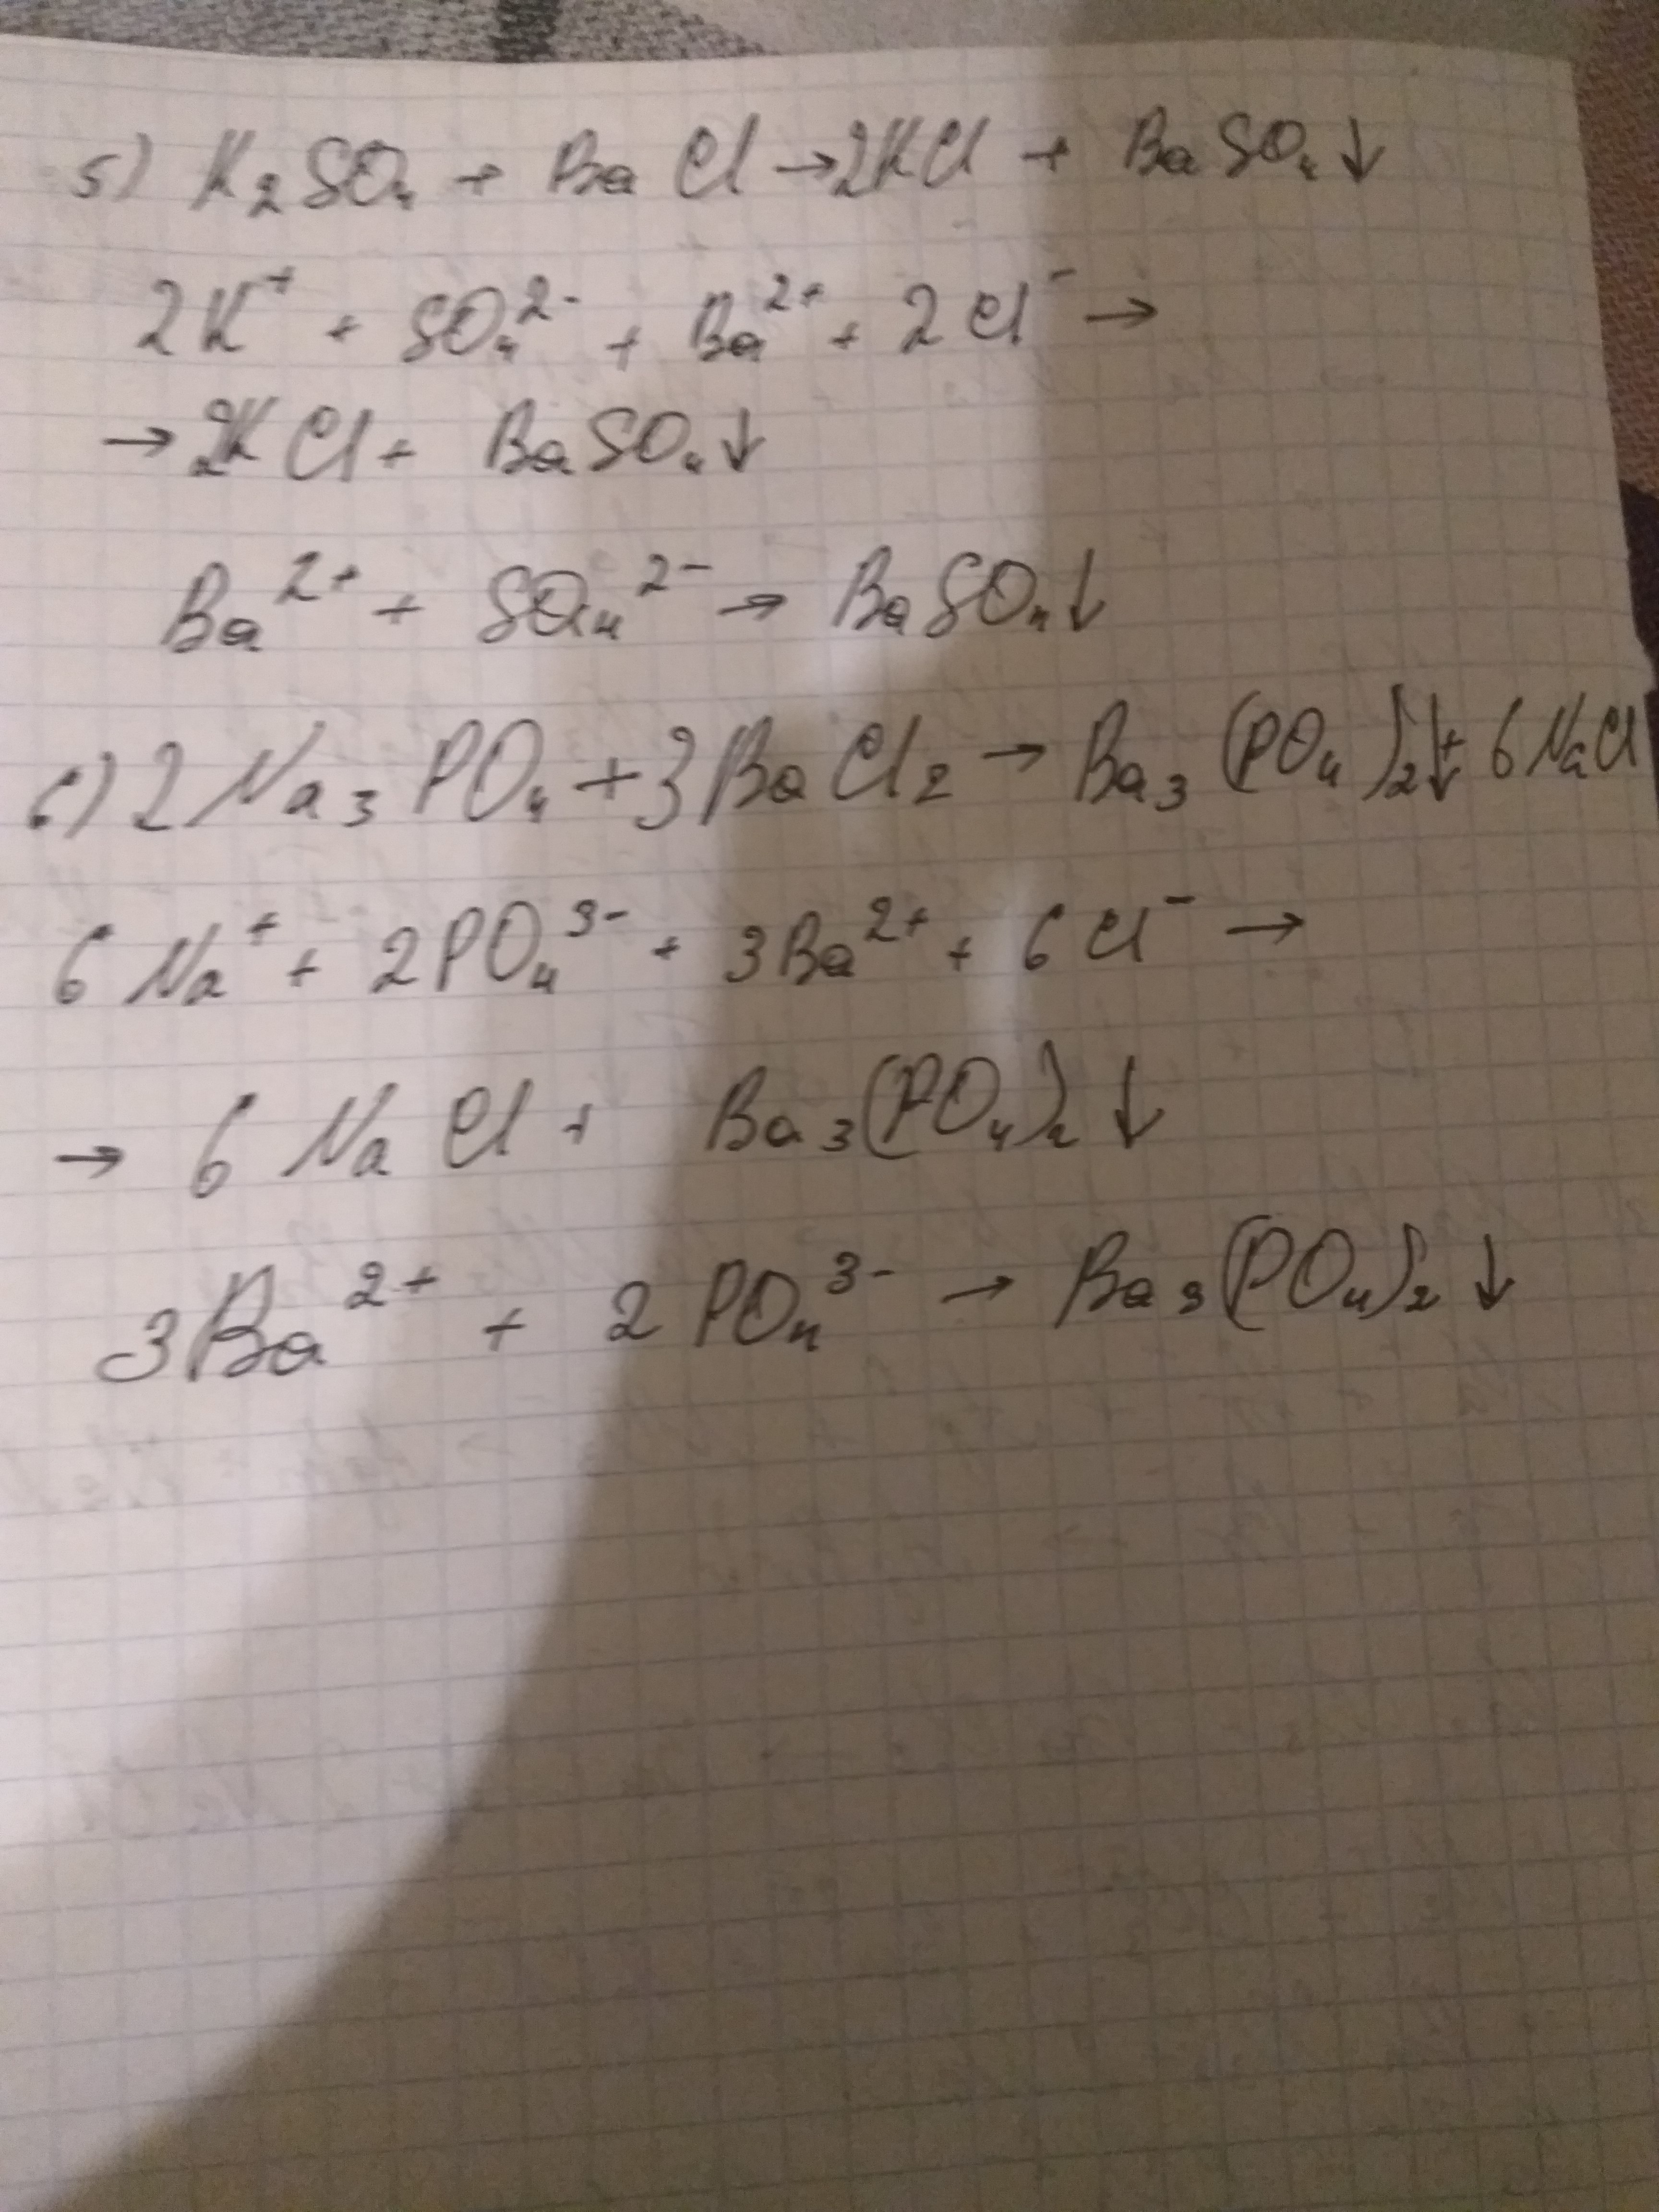 5) K₂SO₄ + BaCl → 2KCl + BaSO₄↓
2K⁺ + SO₄²⁻ + Ba²⁺ + 2Cl⁻ →
→ 2KCl + BaSO₄↓
Ba²⁺ + SO₄²⁻ → BaSO₄↓
6) 2Na₃PO₄ + 3BaCl₂ → Ba₃(PO₄)₂↓ + 6NaCl
6Na⁺ + 2PO₄³⁻ + 3Ba²⁺ + 6Cl⁻ →
→ 6NaCl + Ba₃(PO₄)₂↓
3Ba²⁺ + 2PO₄³⁻ → Ba₃(PO₄)₂↓